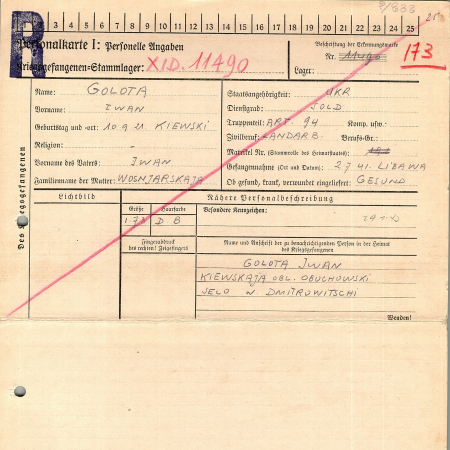 1 2 3 4 5 6 7 8 9 10 11 12 13 14 15 16 17 18 19 20 21 22 23 24 25
R
Personalkarte I: Personelle Angaben
Kriegsgefangenen-Stammlager: XID. 11490
Beschriftung der Erkennungsmarke
Nr. 11490
173
Lager:
Des Kriegsgefangenen
Name: GOLOTA
Vorname: IWAN
Geburtstag und -ort: 10.9.21. KIEWSKI
Religion: -
Vorname des Vaters: IWAN
Familienname der Mutter: WOSNJARSKAJA
Staatsangehörigkeit: UKR
Dienstgrad: SOLD
Truppenteil: ART. 94 Komp. usw.:
Zivilberuf: LANDARB. Berufs-Gr.:
Matrikel Nr. (Stammrolle des Heimatstaates):
Gefangennahme (Ort und Datum): 2.7.41. LIBAWA
Ob gesund, krank, verwundet eingeliefert: GESUND
Lichtbild
Nähere Personalbeschreibung
Größe Haarfarbe Besondere Kennzeichen:
D B
Fingerabdruck
des rechten! Zeigefingers
Name und Anschrift der zu benachrichtigenden Person in der Heimat
des Kriegsgefangenen
GOLOTA IWAN
KIEWSKAJA OBL. OBUCHOWSKI
SELO W. DMITROWITSCHI
Wenden!